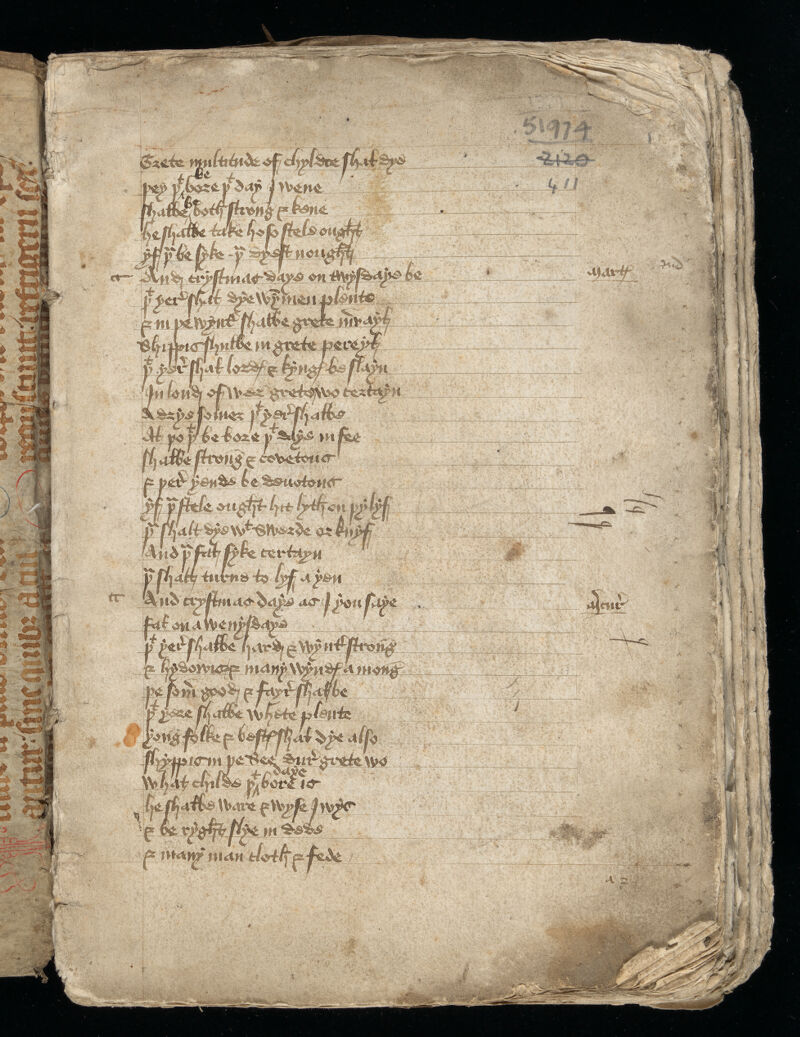 51974
2120
411
Grete multitude of chyldre shal dye
þey þt be bore þt day I wene
shalbe both strong & kene
he shalbe take ho so stele ought
yf þu be syke þu dyest nought
And crystmas daye on twysdaye be
marts
þt yer shal dye wymen plente
& in þe wynter shalbe grete
Shippis shulbe in grete pereyl
þt yer shal lordes & kynges be slayn
In londes of wer grete wo certayn
A drye somer þt yer shalbe
Al þo þt be bore þt daye in fee
shalbe strong & covetous
& þer yende be
yf þu stele ought hit lyth on þy lyf
þu shalt dye wt swerde or knyf
And þu fal syke certayn
þu shalt turne to lyf a yen
And crystmas daye as I you saye
fal on a wenysdaye
þt yer shalbe hard & wynter strong
& many wyndes a mong
þe somer good & fayr shalbe
þt yere shalbe whete plente
yong folke & bestes shal dye also
shyppis in þe see dur grete wo
What childe þt daye bore is
he shalbe ware & wyse I wys
& be ryght slye in dede
& many man cloth & fede